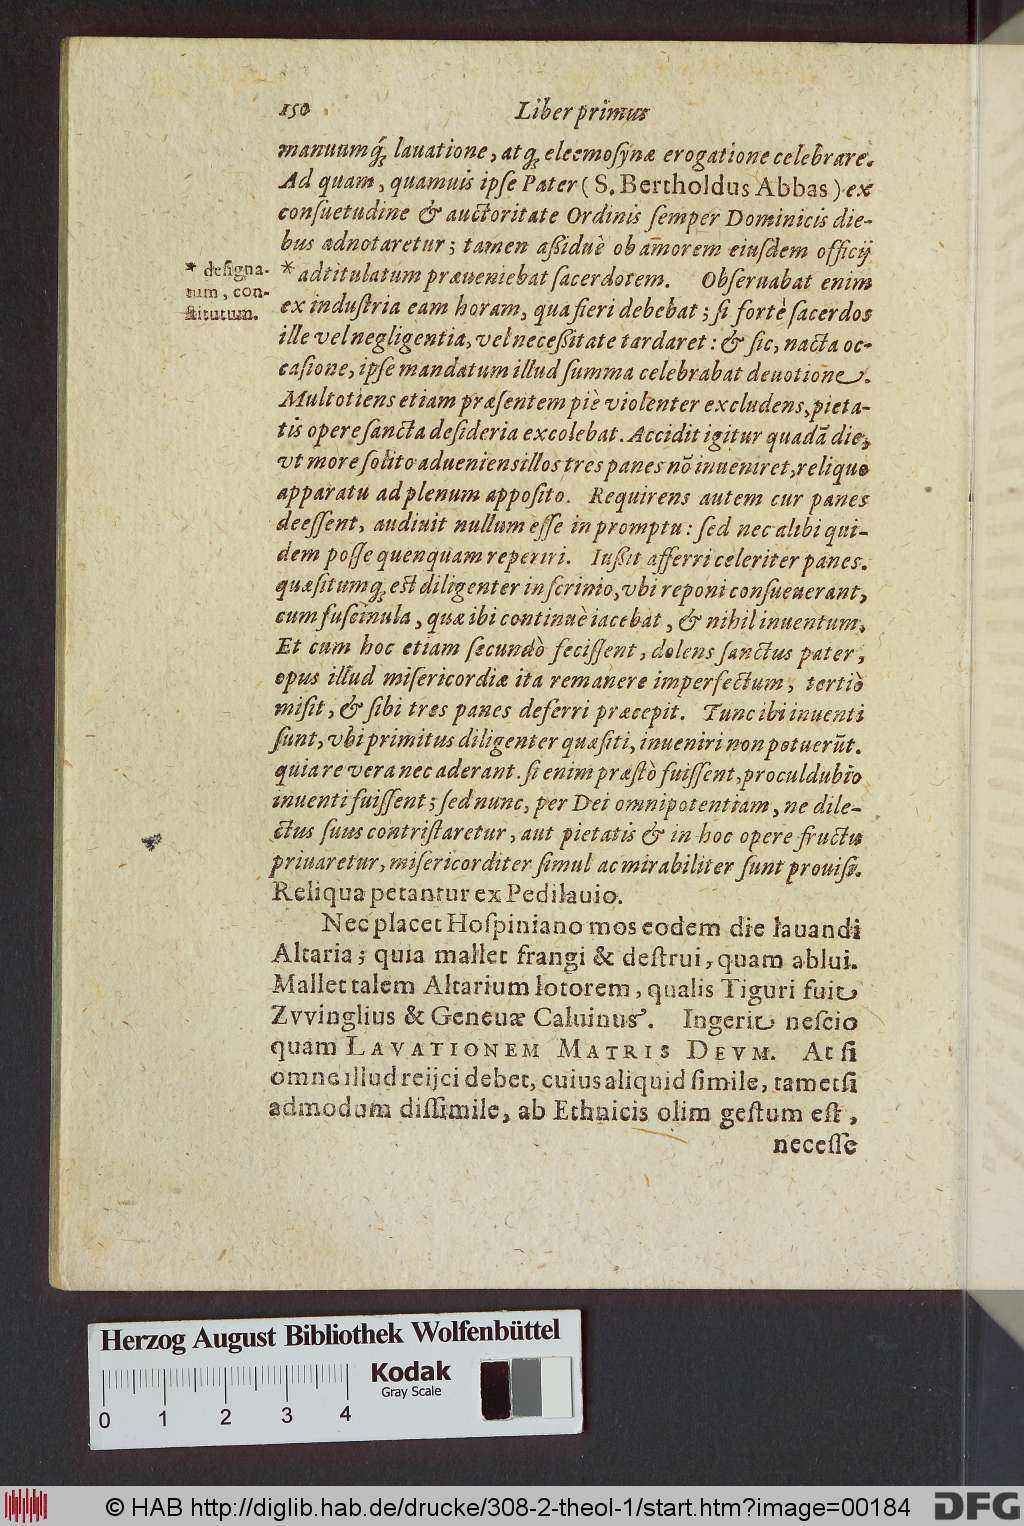 150 Liber primus
manuumq́; lauatione, atq; eleemosynæ erogatione celebrare.
Ad quam, quamuis ipse Pater (S. Bertholdus Abbas) ex
consuetudine & auctoritate Ordinis semper Dominicis die-
bus adnotaretur; tamen aßiduè ob am̄orem eiusdem officij
* adtitulatum præueniebat sacerdotem. Obseruabat enim
* designa-
tum, con-
stitutum.
ex industria eam horam, qua fieri debebat; si fortè sacerdos
ille vel negligentia, vel neceßitate tardaret: & sic, nacta oc-
casione, ipse mandatum illud summa celebrabat deuotione.
Multotiens etiam præsentem piè violenter excludens, pieta-
tis opere sancta desideria excolebat. Accidit igitur quadā die,
vt more solito adueniens illos tres panes nō inueniret, reliquo
apparatu ad plenum apposito. Requirens autem cur panes
deessent, audiuit nullum esse in promptu: sed nec alibi qui-
dem posse quenquam reperiri. Iußit afferri celeriter panes.
quæsitumq; est diligenter in scrinio, vbi reponi consueuerant,
cum fuscinula, quæ ibi continuè iacebat, & nihil inuentum.
Et cum hoc etiam secundò fecissent, dolens sanctus pater,
opus illud misericordiæ ita remanere imperfectum, tertiò
misit, & sibi tres panes deferri præcepit. Tunc ibi inuenti
sunt, vbi primitus diligenter quæsiti, inueniri non potuerūt.
quia re vera nec aderant. si enim præstò fuissent, proculdubio
inuenti fuissent; sed nunc, per Dei omnipotentiam, ne dile-
ctus suus contristaretur, aut pietatis & in hoc opere fructu
priuaretur, misericorditer simul ac mirabiliter sunt prouisi.
Reliqua petantur ex Pedilauio.
Nec placet Hospiniano mos eodem die lauandi
Altaria; quia mallet frangi & destrui, quam ablui.
Mallet talem Altarium lotorem, qualis Tiguri fuit
Zvvinglius & Geneuæ Caluinus. Ingerit nescio
quam LAVATIONEM MATRIS DEVM. At si
omne illud reijci debet, cuius aliquid simile, tametsi
admodum dissimile, ab Ethnicis olim gestum est,
necesse
Herzog August Bibliothek Wolfenbüttel
Kodak
Gray Scale
0 1 2 3 4
© HAB http://diglib.hab.de/drucke/308-2-theol-1/start.htm?image=00184
DFG